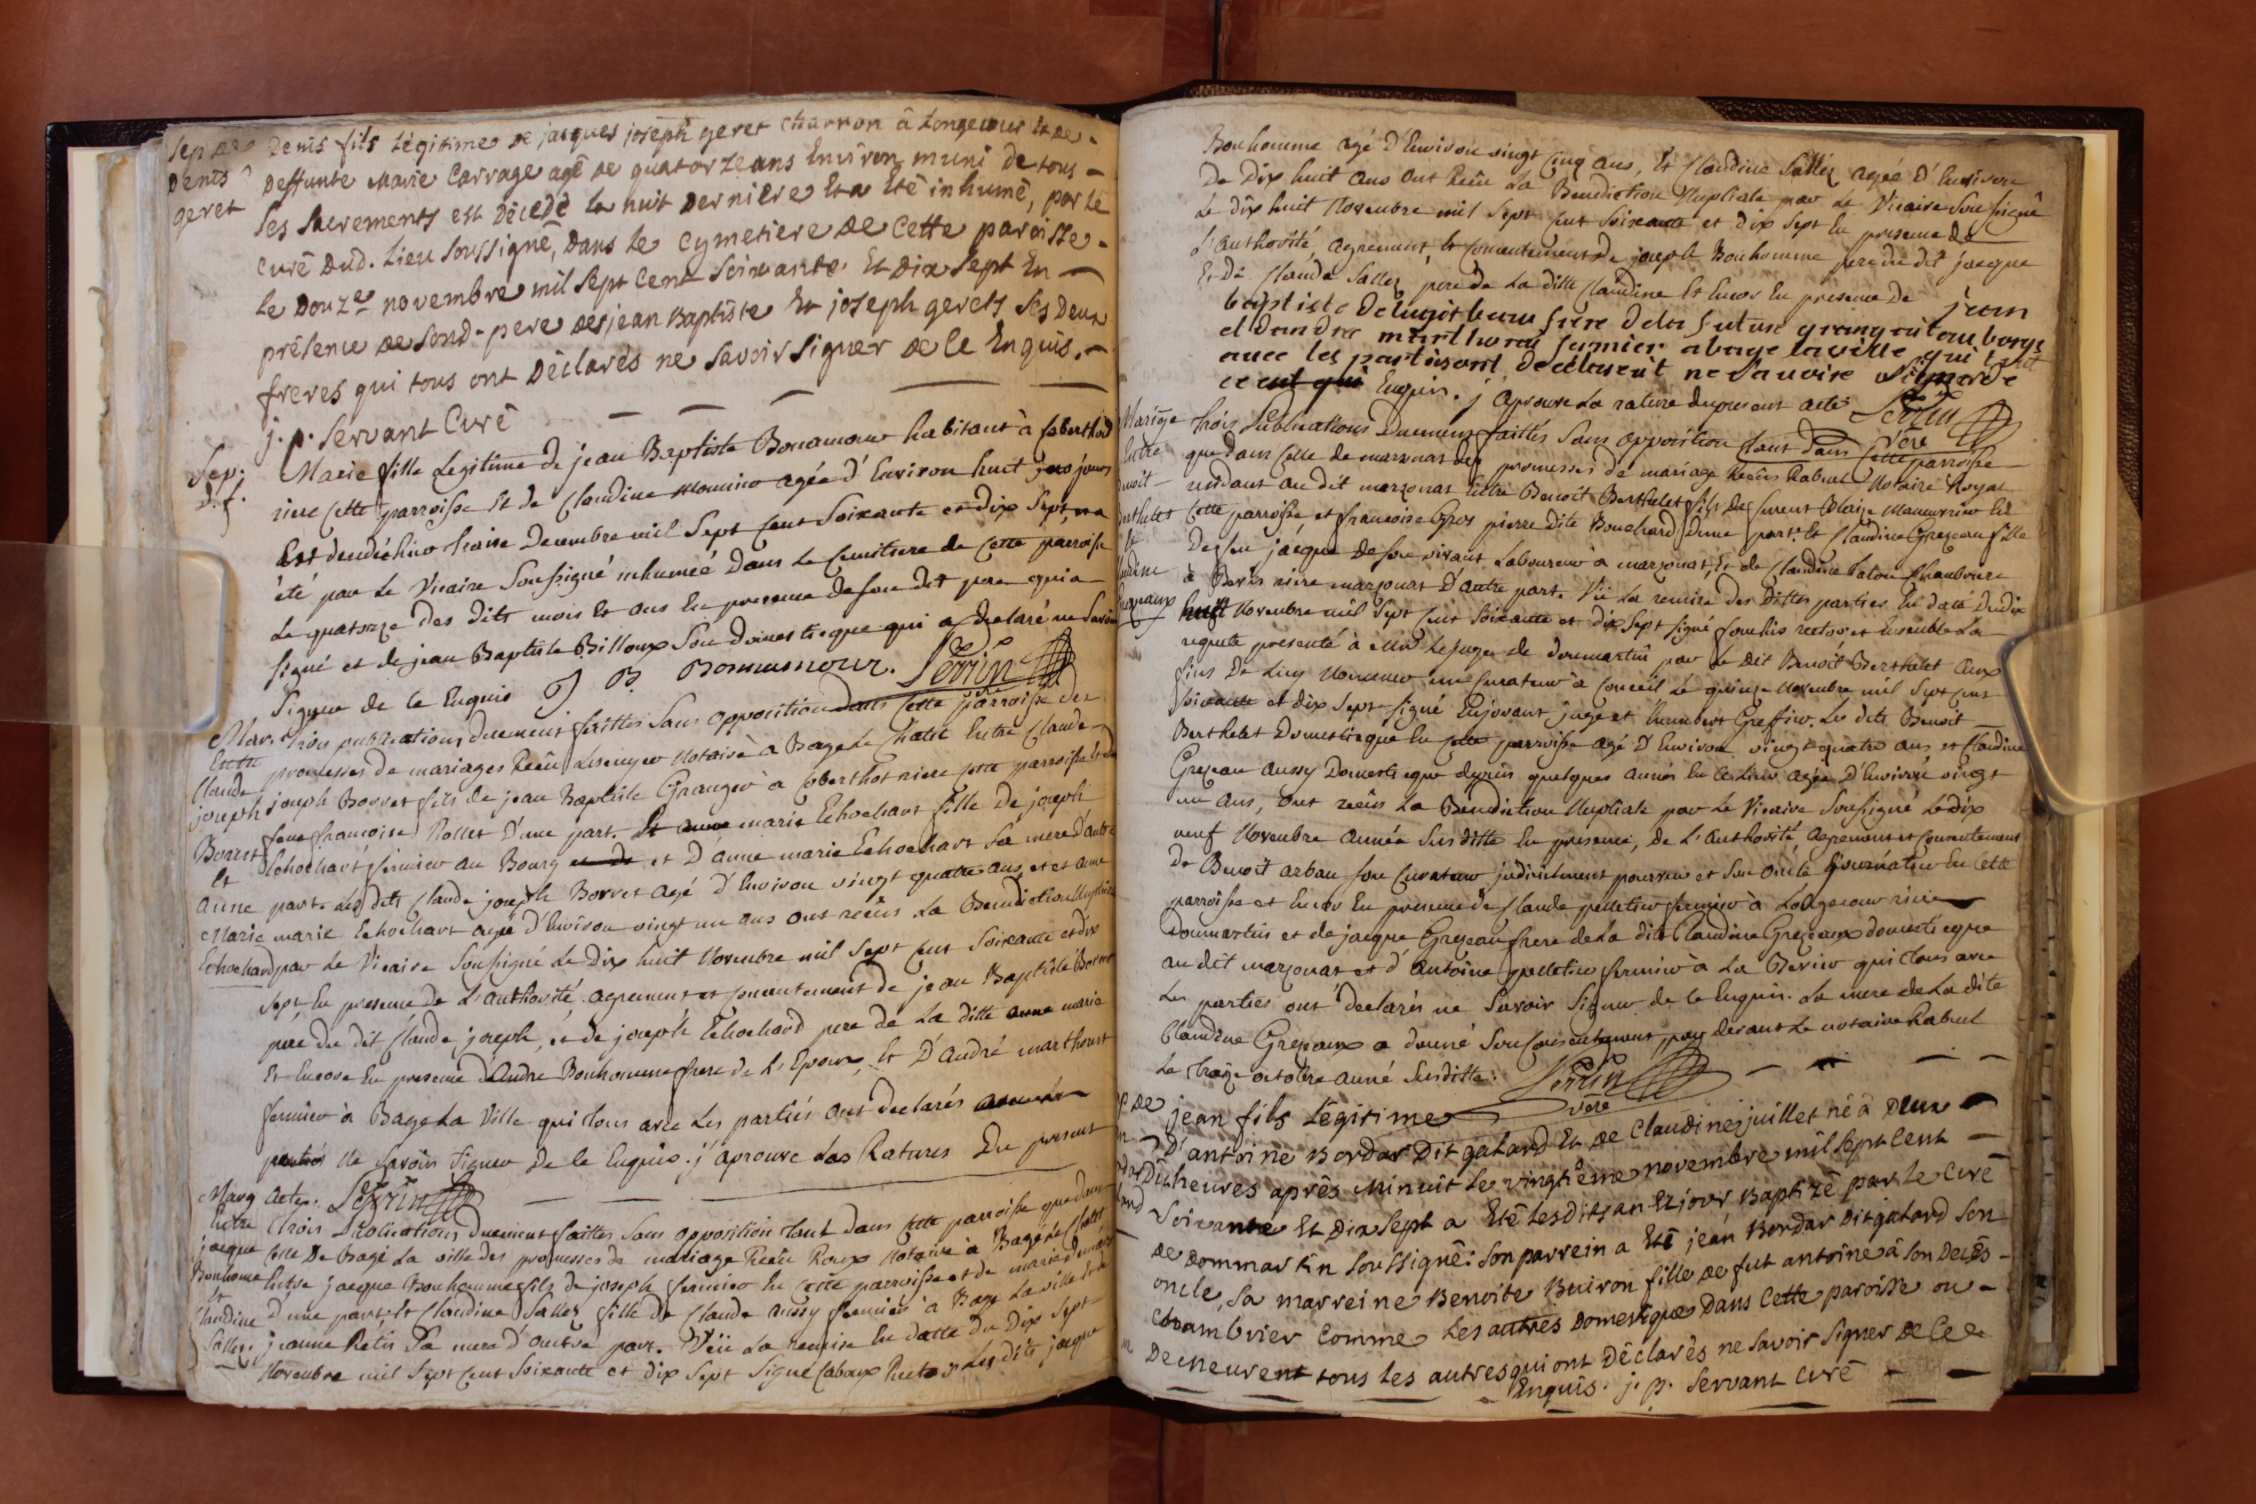 Sep de Denis fils légitime de jacques joseph geret charron â Longecour et de
Denis deffunte Marie Carrage agé de quatorze ans Environ, muni de tous
geret Ses Sacrements est Décedé la nuit Derniere Et a Eté inhumé, par le
Curé Dud. Lieu Soussigné, Dans le Cymetiere de Cette paroisse.
Le Douze novembre mil Sept Cent Soixante Et Dix Sept En
présence de Sond. pere de jean Baptiste Et joseph gerets Ses Deux
freres qui tous ont Déclarés ne Savoir Signer de Ce Enquis.
j. p. Servant Curé
Sep. Marie fille Legitime de jean Baptiste Bonamour habitant à
D. f. riere Cette parroisse Et de Claudine agée d'Environ huit jours
Est decedé treise mil Sept Cent Soixante et dix Sept, a
été par Le Vicaire Soussigné inhumée Dans Le Cemitiere de Cette parroisse
Le quatorze des dits mois Et ans En presence de son dit pere qui a
signé et de jean Baptiste Billoux Son Domestieque qui a declaré ne Savoir
Signer de Ce Enquis J B Bonnamour. Perrin
Mar. trois publications duement faittes Sans opposition dans Cette parroisse des
Entre promesses de mariages Reçu notaire à Bage Le Chatel Entre Claude
Claude joseph Borret fils de jean Baptiste Granger à riere Cette parroisse
joseph françoise Rollet D'une part. Et anne marie Echochart fille de joseph
Borret Echochart fermier au Bourg et de et D'anne marie Echochart Sa mere d'autre
et part. Les dits Claude joseph Borret agé d'Environ vingt quatre ans, et anne
Anne marie Echochart agée d'Environ vingt un ans ont reçus La Benediction Nuptiale
Marie par Le Vicaire Soussigné Le Dix huit Novembre mil Sept Cent Soixante et dix
Echochard Sept, En presence de L'authorité agrement et Consentement de jean Baptiste Borret
pere du dit Claude joseph, et de joseph Echochard pere de La ditte anne marie
Et Encore En presence d'Andre Bonhomme frere de L'Epoux, Et D'André marthourt
fermier à Bage La Ville qui tous avec Les partiés ont declarés
partiés Ne Savoir Signer De Ce Enquis. j'aprouve Les Ratures Du present
Marg Acte. Perrin
Entre trois Publications Duement faittes Sans opposition tant dans Cette parroisse que dans
jacque Celle De Bagé La ville des promesses de mariage Reçu Roux Notaire à Bagé Le Chatel
Bonhome Entre jacque Bonhomme fils de joseph fermier En Cette parroisse et de marie
Et D'une part, Et Claudine Sallez fille de Claude aussy fermier à Bage La ville Et de
Claudine jeanne Retis Sa mere d'autre part. Veü La remise En datte Du Dix Sept
Sallez Novembre mil Sept Cent Soixante et dix Sept Signé Cabaux Recteur. Les dits jacque
Bonhomme agé d'Environ vingt Cinq ans, Et Claudine Sallez agée d'Environ
De Dix huit ans ont Reçu La Benediction Nuptiale par Le Vicaire Soussigné
Le dix huit Novembre mil Sept Cent Soixante et dix Sept En presence de
L'authorité, agrement, et Consentement de joseph Bonhomme pere du dit jacque
Et De Claude Sallez pere de La ditte Claudine Et Encor En presence de jean
baptiste frere de la future granger au bourg
et Dandre marthorat fermier a bage la ville qui tous
avec les parties ont declaré ne Savoire Signer de
ce Enquis. j'aprouve La rature du present acte. Perrin vre
Mariage trois Publications Duement faittes Sans opposition tant dans Cette parroisse
Entre que dans Celle de marsonat des promesses de mariage Reçus Rabuel Notaire Royal
Benoit residant au dit marzonat Entre Benoit Berthelet fils de furent Blaise Manouvrier En
Berthelet Cette parroisse, et françoise Gros pierre dite Bouchard D'une part. Et Claudine Grezeau fille
Et De feu jacque De son vivant Laboureur à marzonat, Et de Claudine
Claudine à riere marzonat D'autre part. Vû La remise des Dittes parties En date Du dix
Grezeaux huit Novembre mil Sept Cent Soixante et dix Sept signé recteur et Ensemble La
requete presenté à Mr Le juge de Dommartin par Le dit Benoit Berthelet aux
fins De Luy Nommer un Curateur à Conseil Le quinze Novembre mil Sept Cent
Soixante et Dix Sept Signé Enjorant juge et humbert Greffier. Les dits Benoit
Berthelet Domestieque En Cette parroisse agé D'Environ vingt quatre ans et Claudine
Grezeau aussy Domestieque depuis quelques années En Ce Lieu agée D'Environ vingt
un ans, ont reçus La Benediction Nuptiale par Le Vicaire Soussigné Le dix
neuf Novembre année Susditte En presence, De L'authorité, agrement et Consentement
de Benoit arban Son Curateur judiciellement pourveu et Son oncle En Cette
parroisse et Encor En presence de Claude pelletier fermier à Longecour riere
Dommartin et de jacque Grezeau frere de La dite Claudine Grezeaux domestieque
au dit marzonat et d'Antoine pelletier fermier à La qui tous avec
Les parties ont declarés ne Savoir Signer de Ce Enquis. La mere de La dite
Claudine Grezaux a donné Son Consentement par devant Le notaire Rabuel
Le treize octobre année Susditte. Perrin
vre
jean fils Légitime
D'antoine Bordar Dit galard Et de Claudine juillet né à Deux
heures aprés Minuit Le vingtieme novembre mil Sept Cent
Soixante Et Dix Sept a Eté Lesdits an Et jour Baptizé par le Curé
de Dommartin Soussigné: Son parrein a Eté jean Bordar Dit galard Son
oncle, Sa marreine Benoite Buiron fille de fut antoine â Son Decés
Chambrier Comme Les autres Domestique Dans Cette paroisse ou
Demeurent tous les autres qui ont Déclarés ne Savoir Signer de Ce
Enquis. j. p. Servant Curé